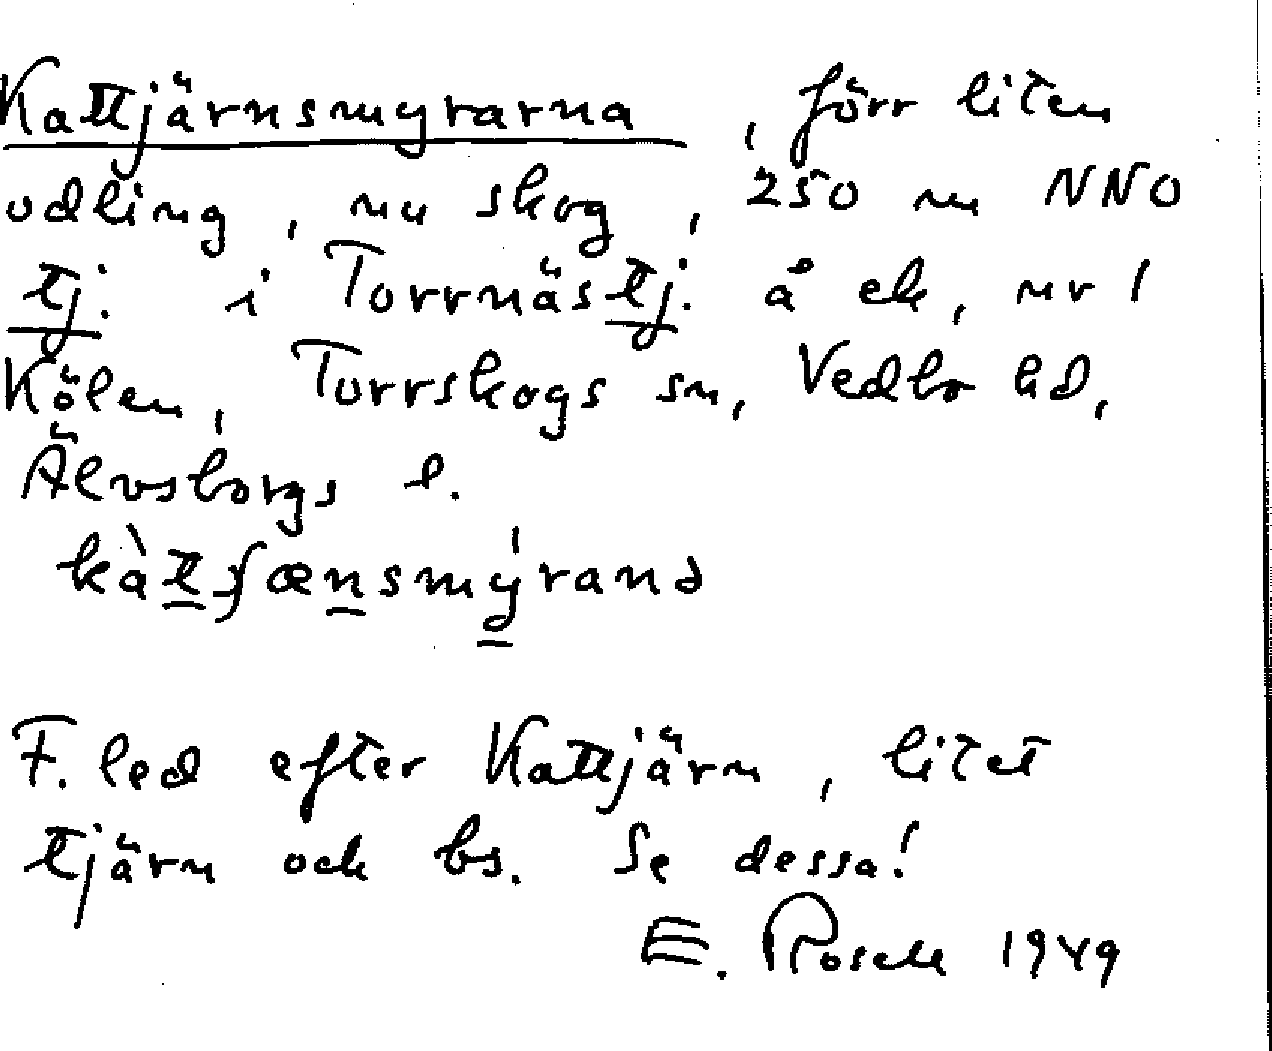 Kattjärnsmyrarna, förr liten
odling, nu skog, 250 m NNO
tj. i Torrnästj. å ek, nr 1
Kölen, Torrskogs sn, Vedbo hd,
Älvsborgs l.
kàtʃænsmýranə
F. led efter Kattjärn, litet
tjärn och bs. Se dessa!
E. Rosell 1949